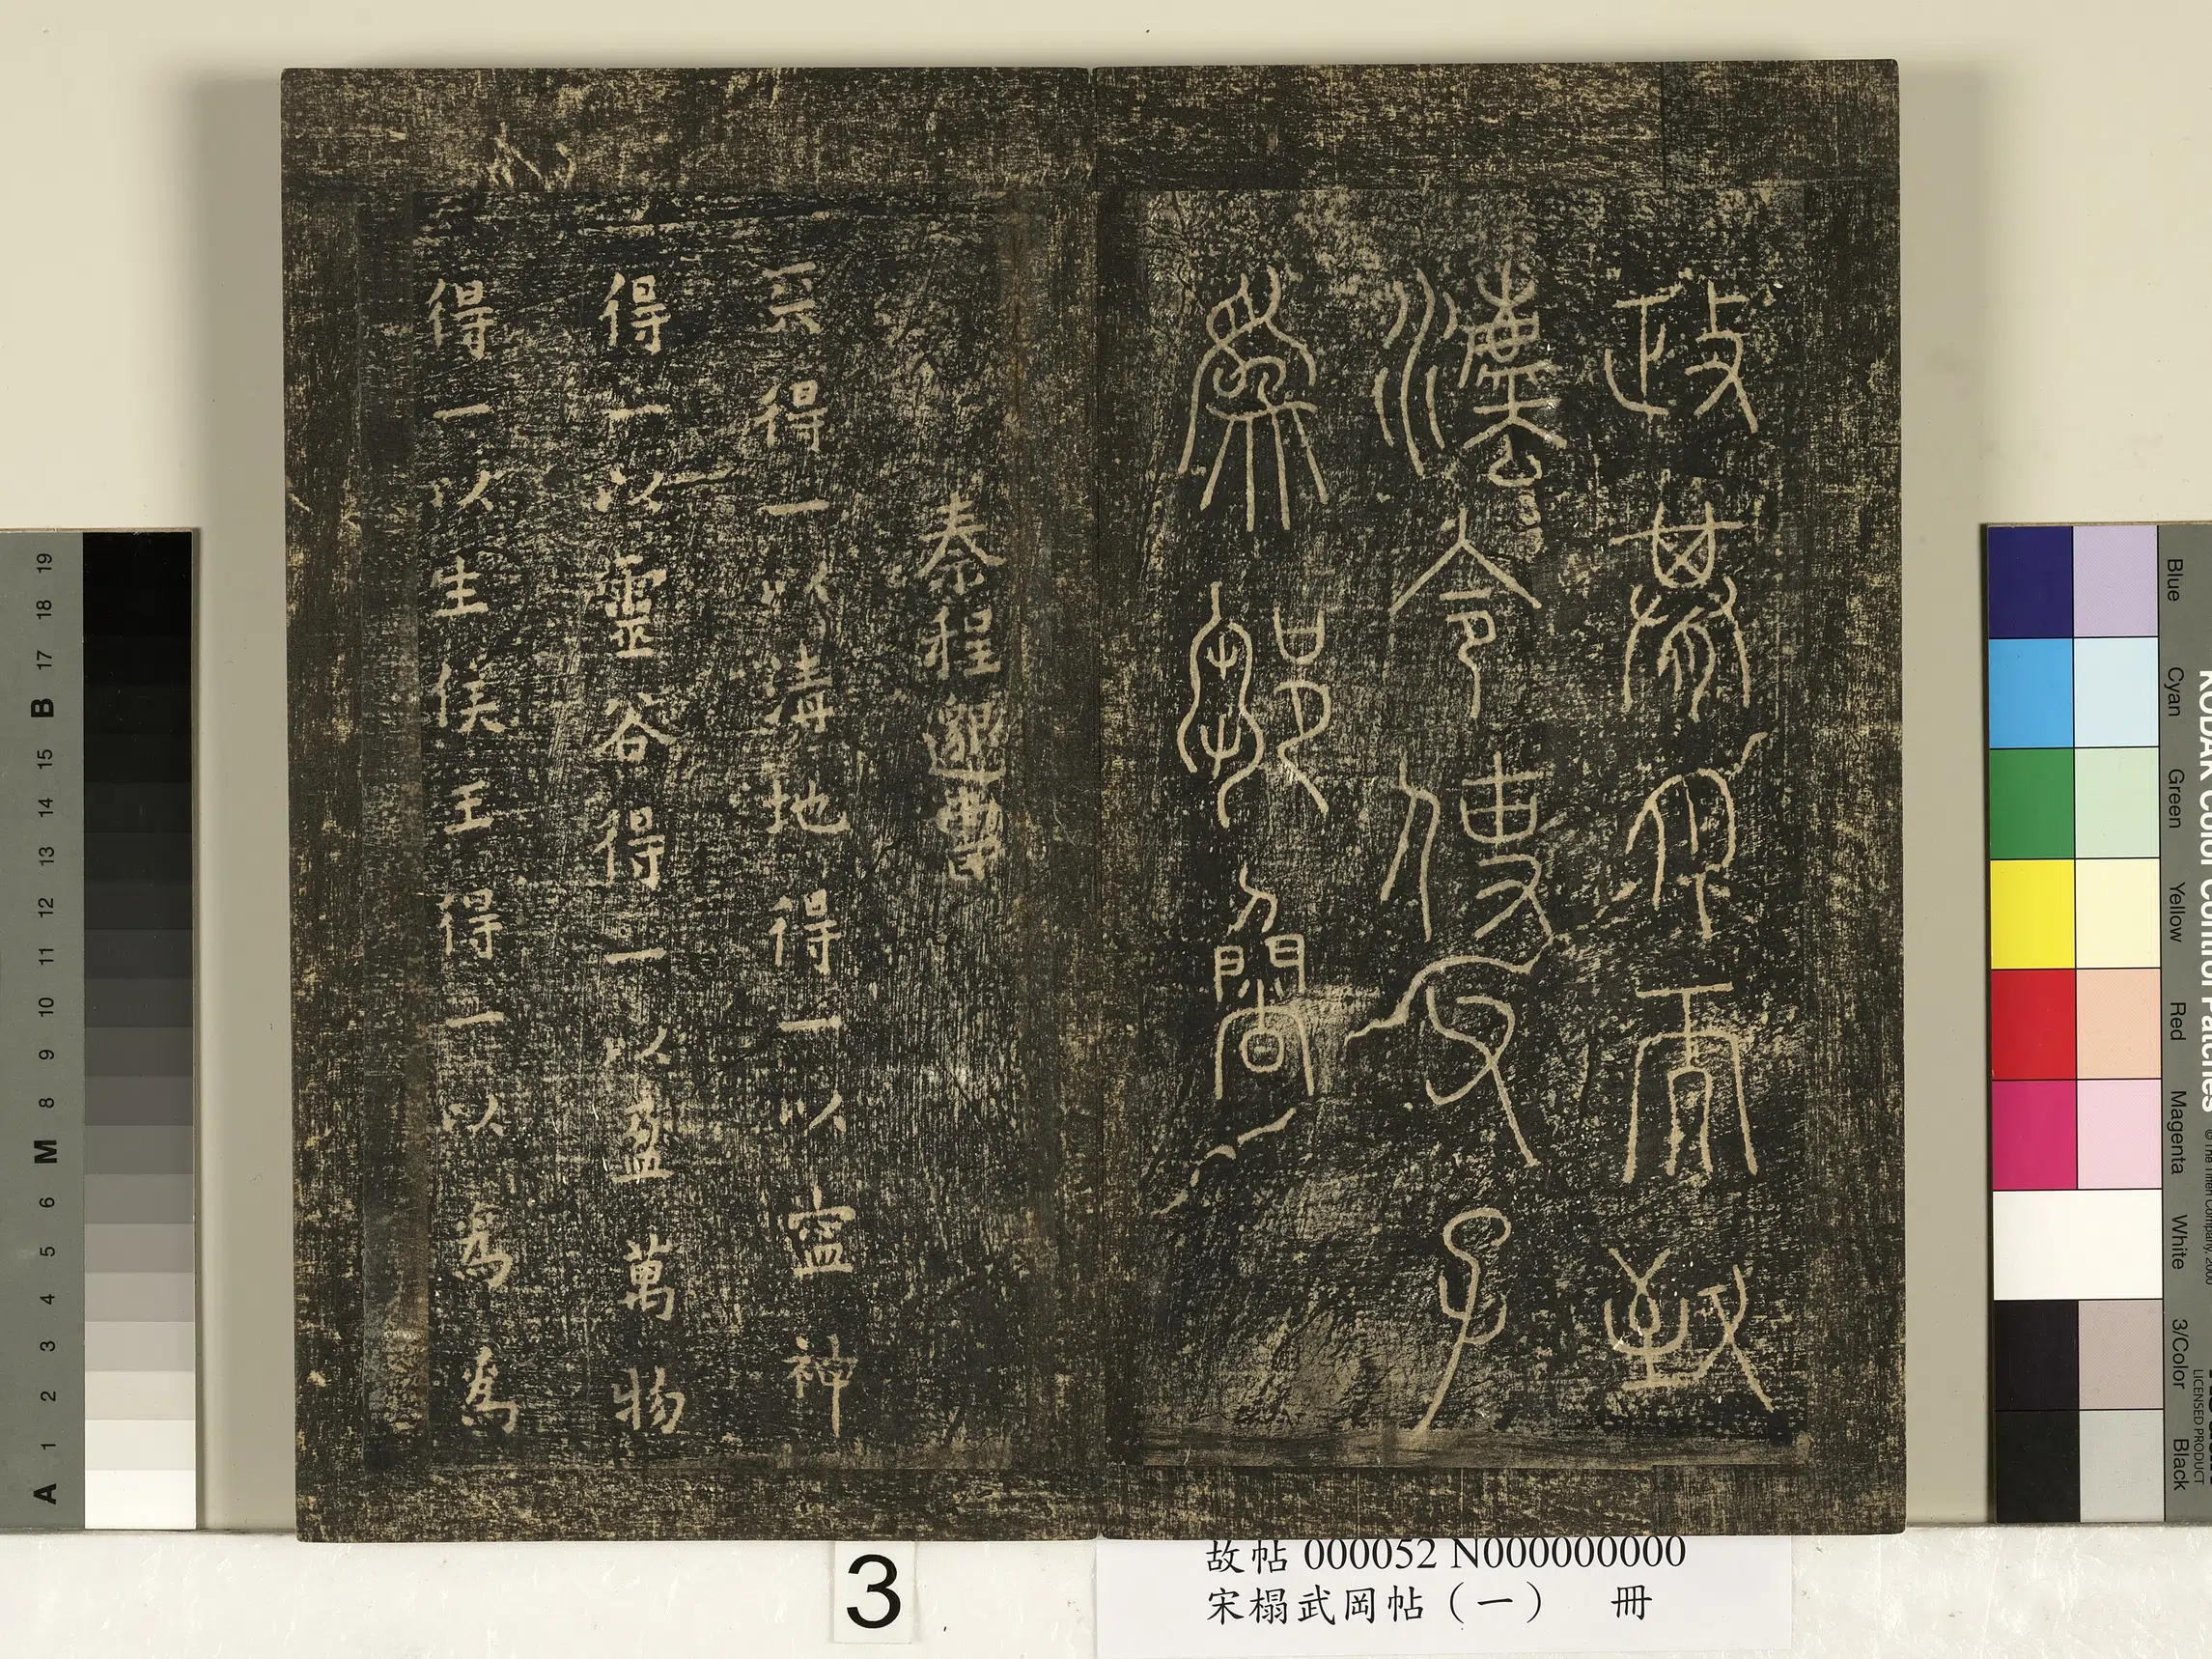 政而致
灋令
秦程邈書
天得一以清地得一以寧神
得一以靈谷得一以盈萬物
得一以生侯王得一以為為
3
故帖 000052 N000000000
宋榻武岡帖（一） 冊
19
18
17
B
15
14
13
12
11
10
9
8
M
6
5
4
3
2
1
A
KODAK Color Control Patches
Blue
Cyan
Green
Yellow
Red
Magenta
White
3/Color
Black
LICENSED PRODUCT